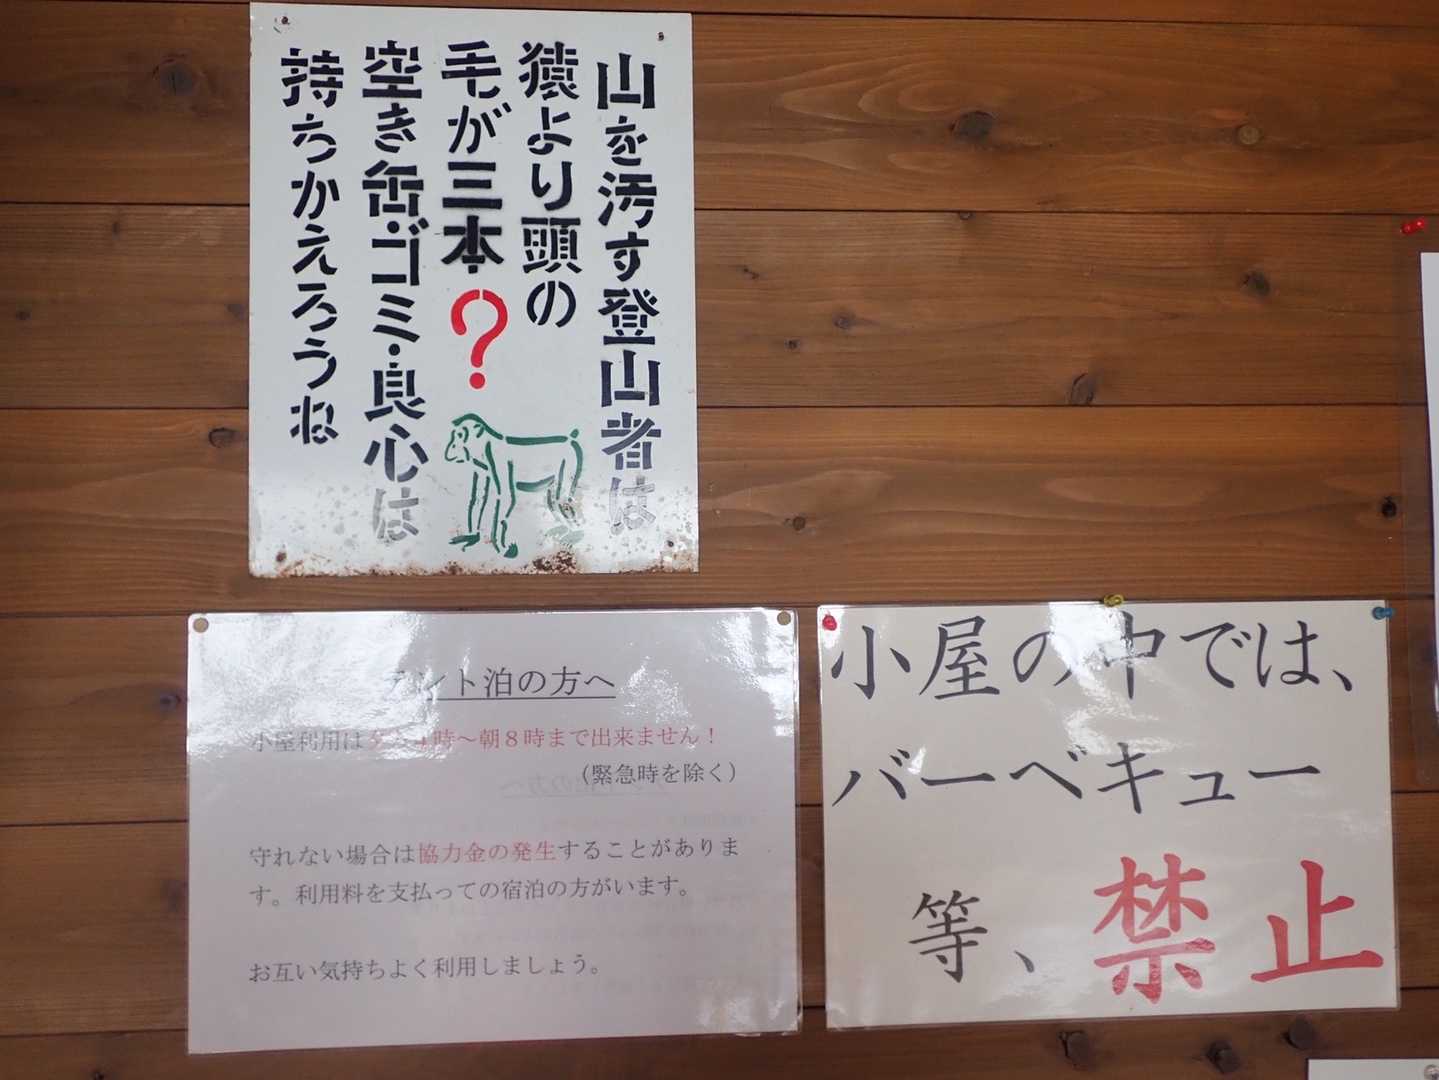 山を汚す登山者は
猿より頭の
毛が三本?
空き缶・ゴミ・良心は
持ちかえろうね
テント泊の方へ
小屋利用は夕方4時~朝8時まで出来ません!
(緊急時を除く)
守れない場合は協力金の発生することがありま
す。利用料を支払っての宿泊の方がいます。
お互い気持ちよく利用しましょう。
小屋の中では、
バーベキュー
等、禁止